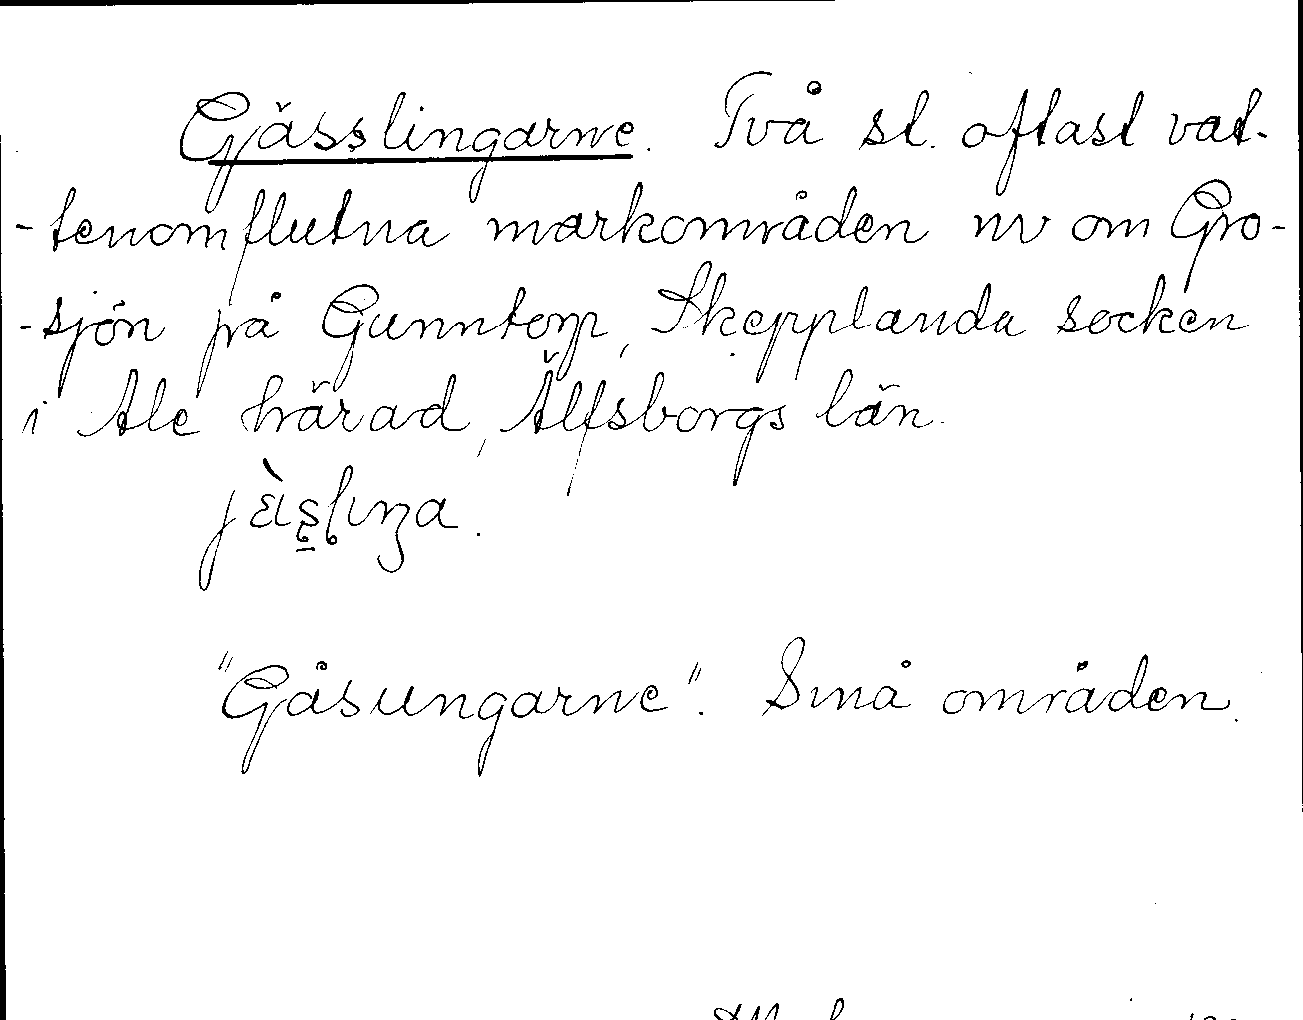 Gässlingarne. Två st. oftast vat-
-tenomflutna markområden nv om Gro-
-sjön på Gunntorp, Skepplanda socken
i Ale härad, Älfsborgs län.
"Gåsungarne". Små områden.